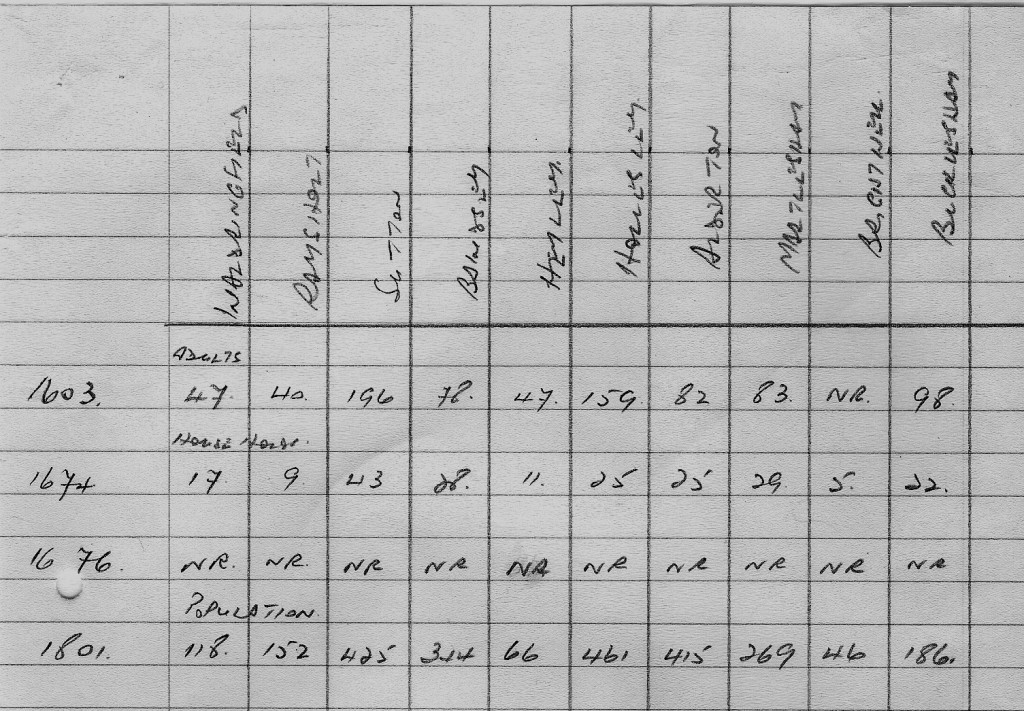 WALDRINGFIELD RAMSHOLT SUTTON BAWDSEY HEMLEY HOLLESLEY ALDERTON MARTLESHAM BRIGHTWELL BUCKLESHAM
ADULTS
1603. 47. 40. 196 78. 47. 159. 82 83. NR. 98.
HOUSE HOLDS.
1674 17 9 43 28. 11. 25 25 29. 5. 22.
1676. NR. NR. NR NR NR NR NR NR NR NR
POPULATION.
1801. 118. 152 425 344 66 461 415 269 46 186.